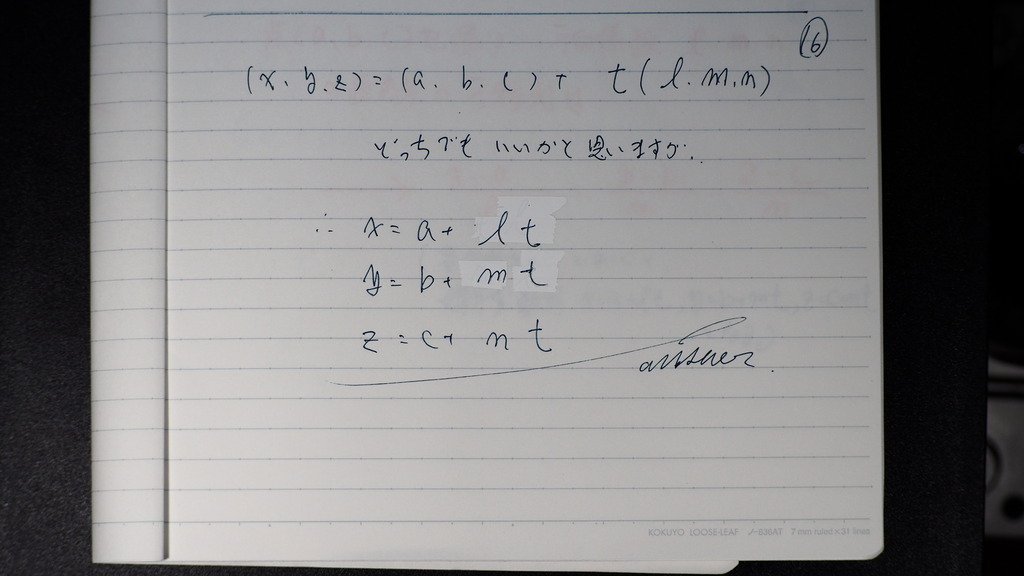 16
(x. y. z) = (a. b. c) + t(l. m. n)
どっちでも いいかと 思いますが..
∴ x = a + lt
y = b + mt
z = c + nt
answer.
KOKUYO LOOSE-LEAF ノ-836AT 7 mm ruled×31 lines